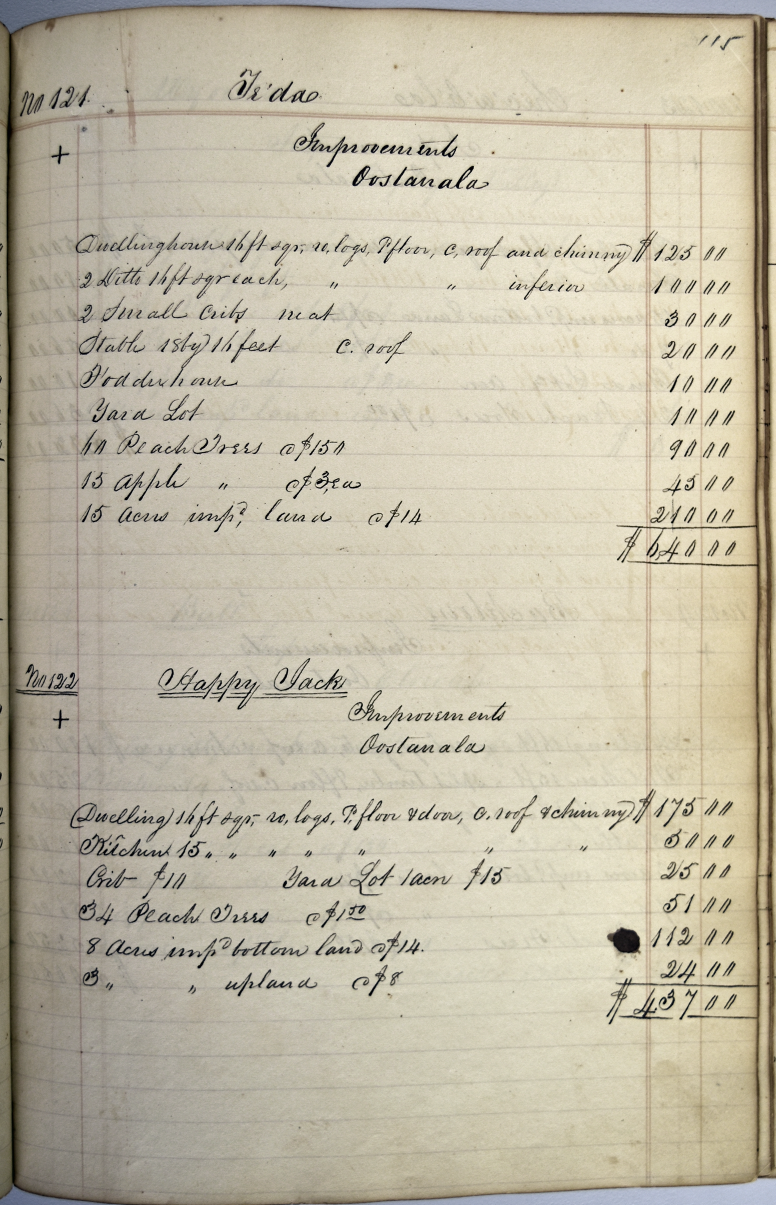 115
No 121. Te'da
+ Improvements
Oostanala
Dwellinghouse 16ft sqr, w, logs, P. floor, C, roof and chimney $ 125 00
2 Ditto 16ft sqr each, " " inferior 100 00
2 Small Cribs neat 30 00
Stable 18 by 16 feet C. roof 20 00
Fodderhouse 10 00
Yard Lot 10 00
60 Peach Trees @ $150 90 00
15 Apple " @ $3, ea 45 00
15 Acres impd, land @ $14 210 00
$ 640 00
No 122 Happy Jack
+ Improvements
Oostanala
Dwelling 16ft sqr, w, logs, P. floor & door, C. roof & chimney $ 175 00
Kitchen 15 " " " " " " " 50 00
Crib $10 Yard Lot 1 acre $15 25 00
34 Peach Trees @ $1 50 51 00
8 Acres impd bottom land @ $14. 112 00
3 " " upland @ $8 24 00
$ 437 00